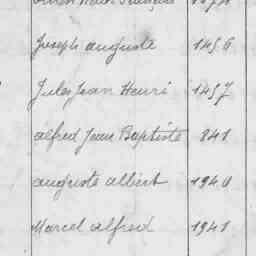 Joseph auguste 1456
Jules Jean Henri 1457
alfred Jean Baptiste 841
auguste albert 1940
Marcel alfred 1941